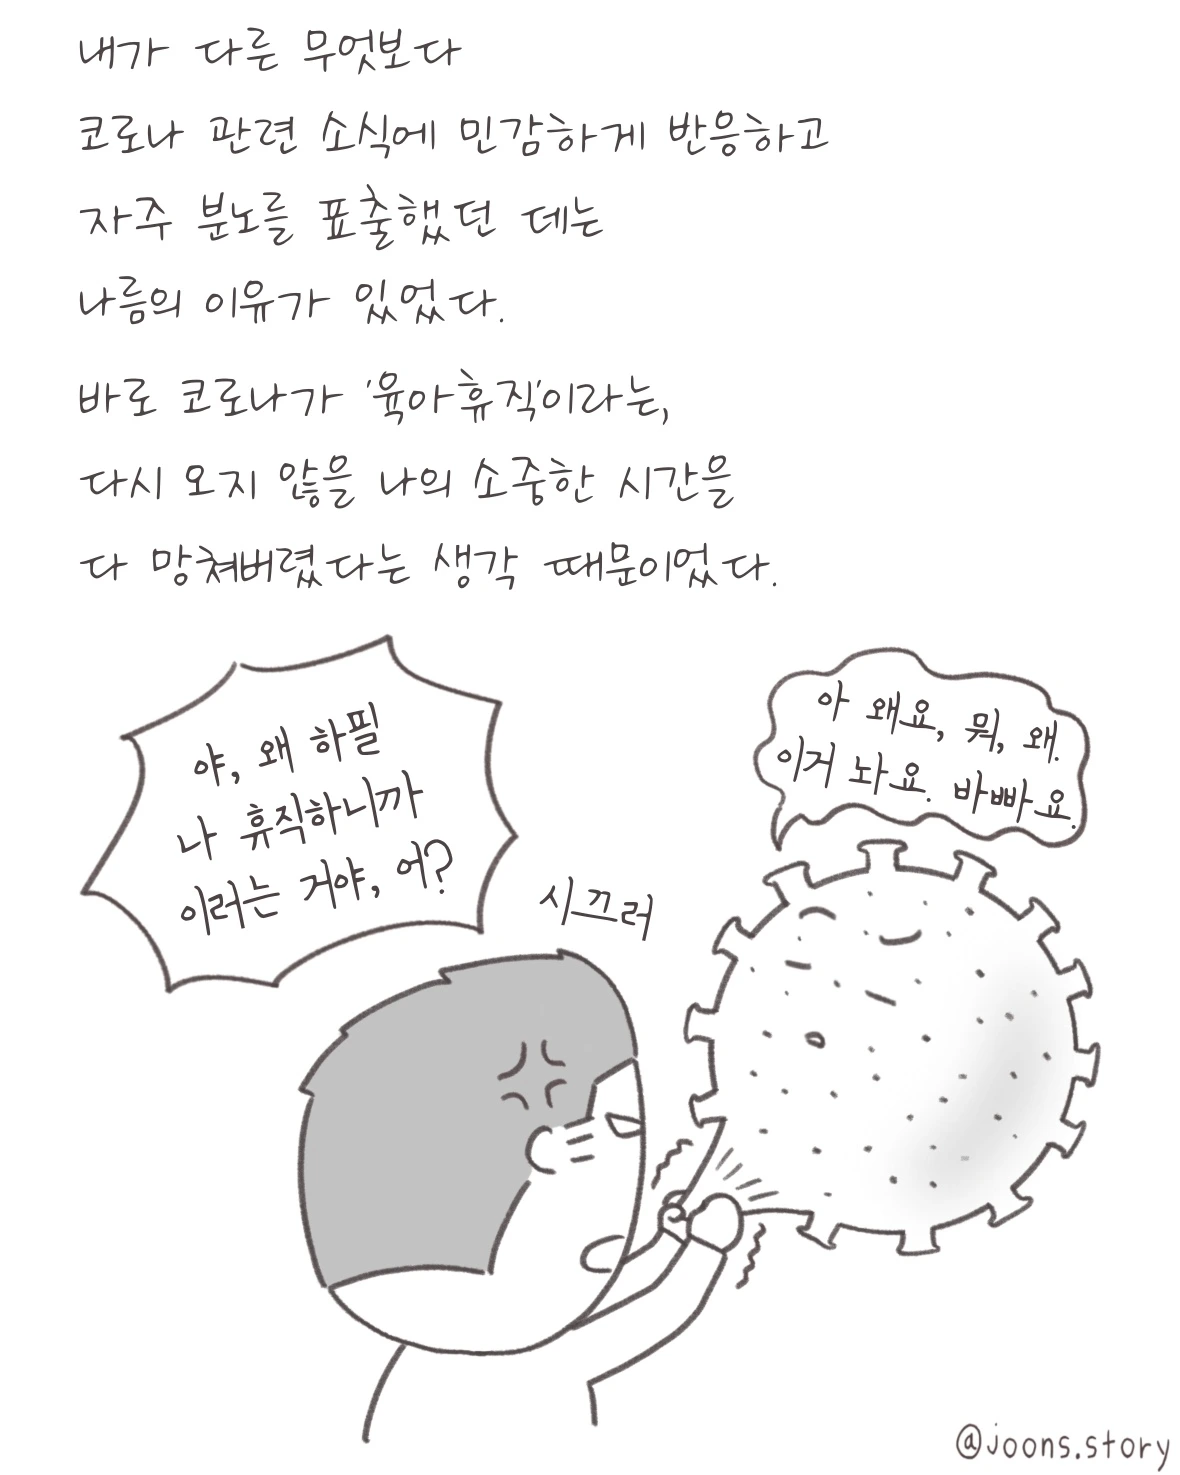 내가 다른 무엇보다
코로나 관련 소식에 민감하게 반응하고
자주 분노를 표출했던 데는
나름의 이유가 있었다.
바로 코로나가 '육아휴직'이라는,
다시 오지 않을 나의 소중한 시간을
다 망쳐버렸다는 생각 때문이었다.
야, 왜 하필
나 휴직하니까
이러는 거야, 어?
시끄러
아 왜요, 뭐, 왜.
이거 놔요. 바빠요.
@joons.story